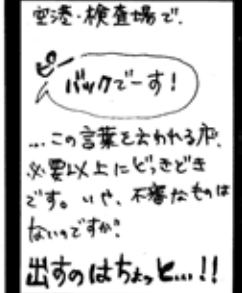 空港・検査場で.
ピー
バックでーす!
…この言葉を云われる度、
必要以上にどっきどき
です。いや、不審なものは
ないのですが?
出すのはちょっと…!!